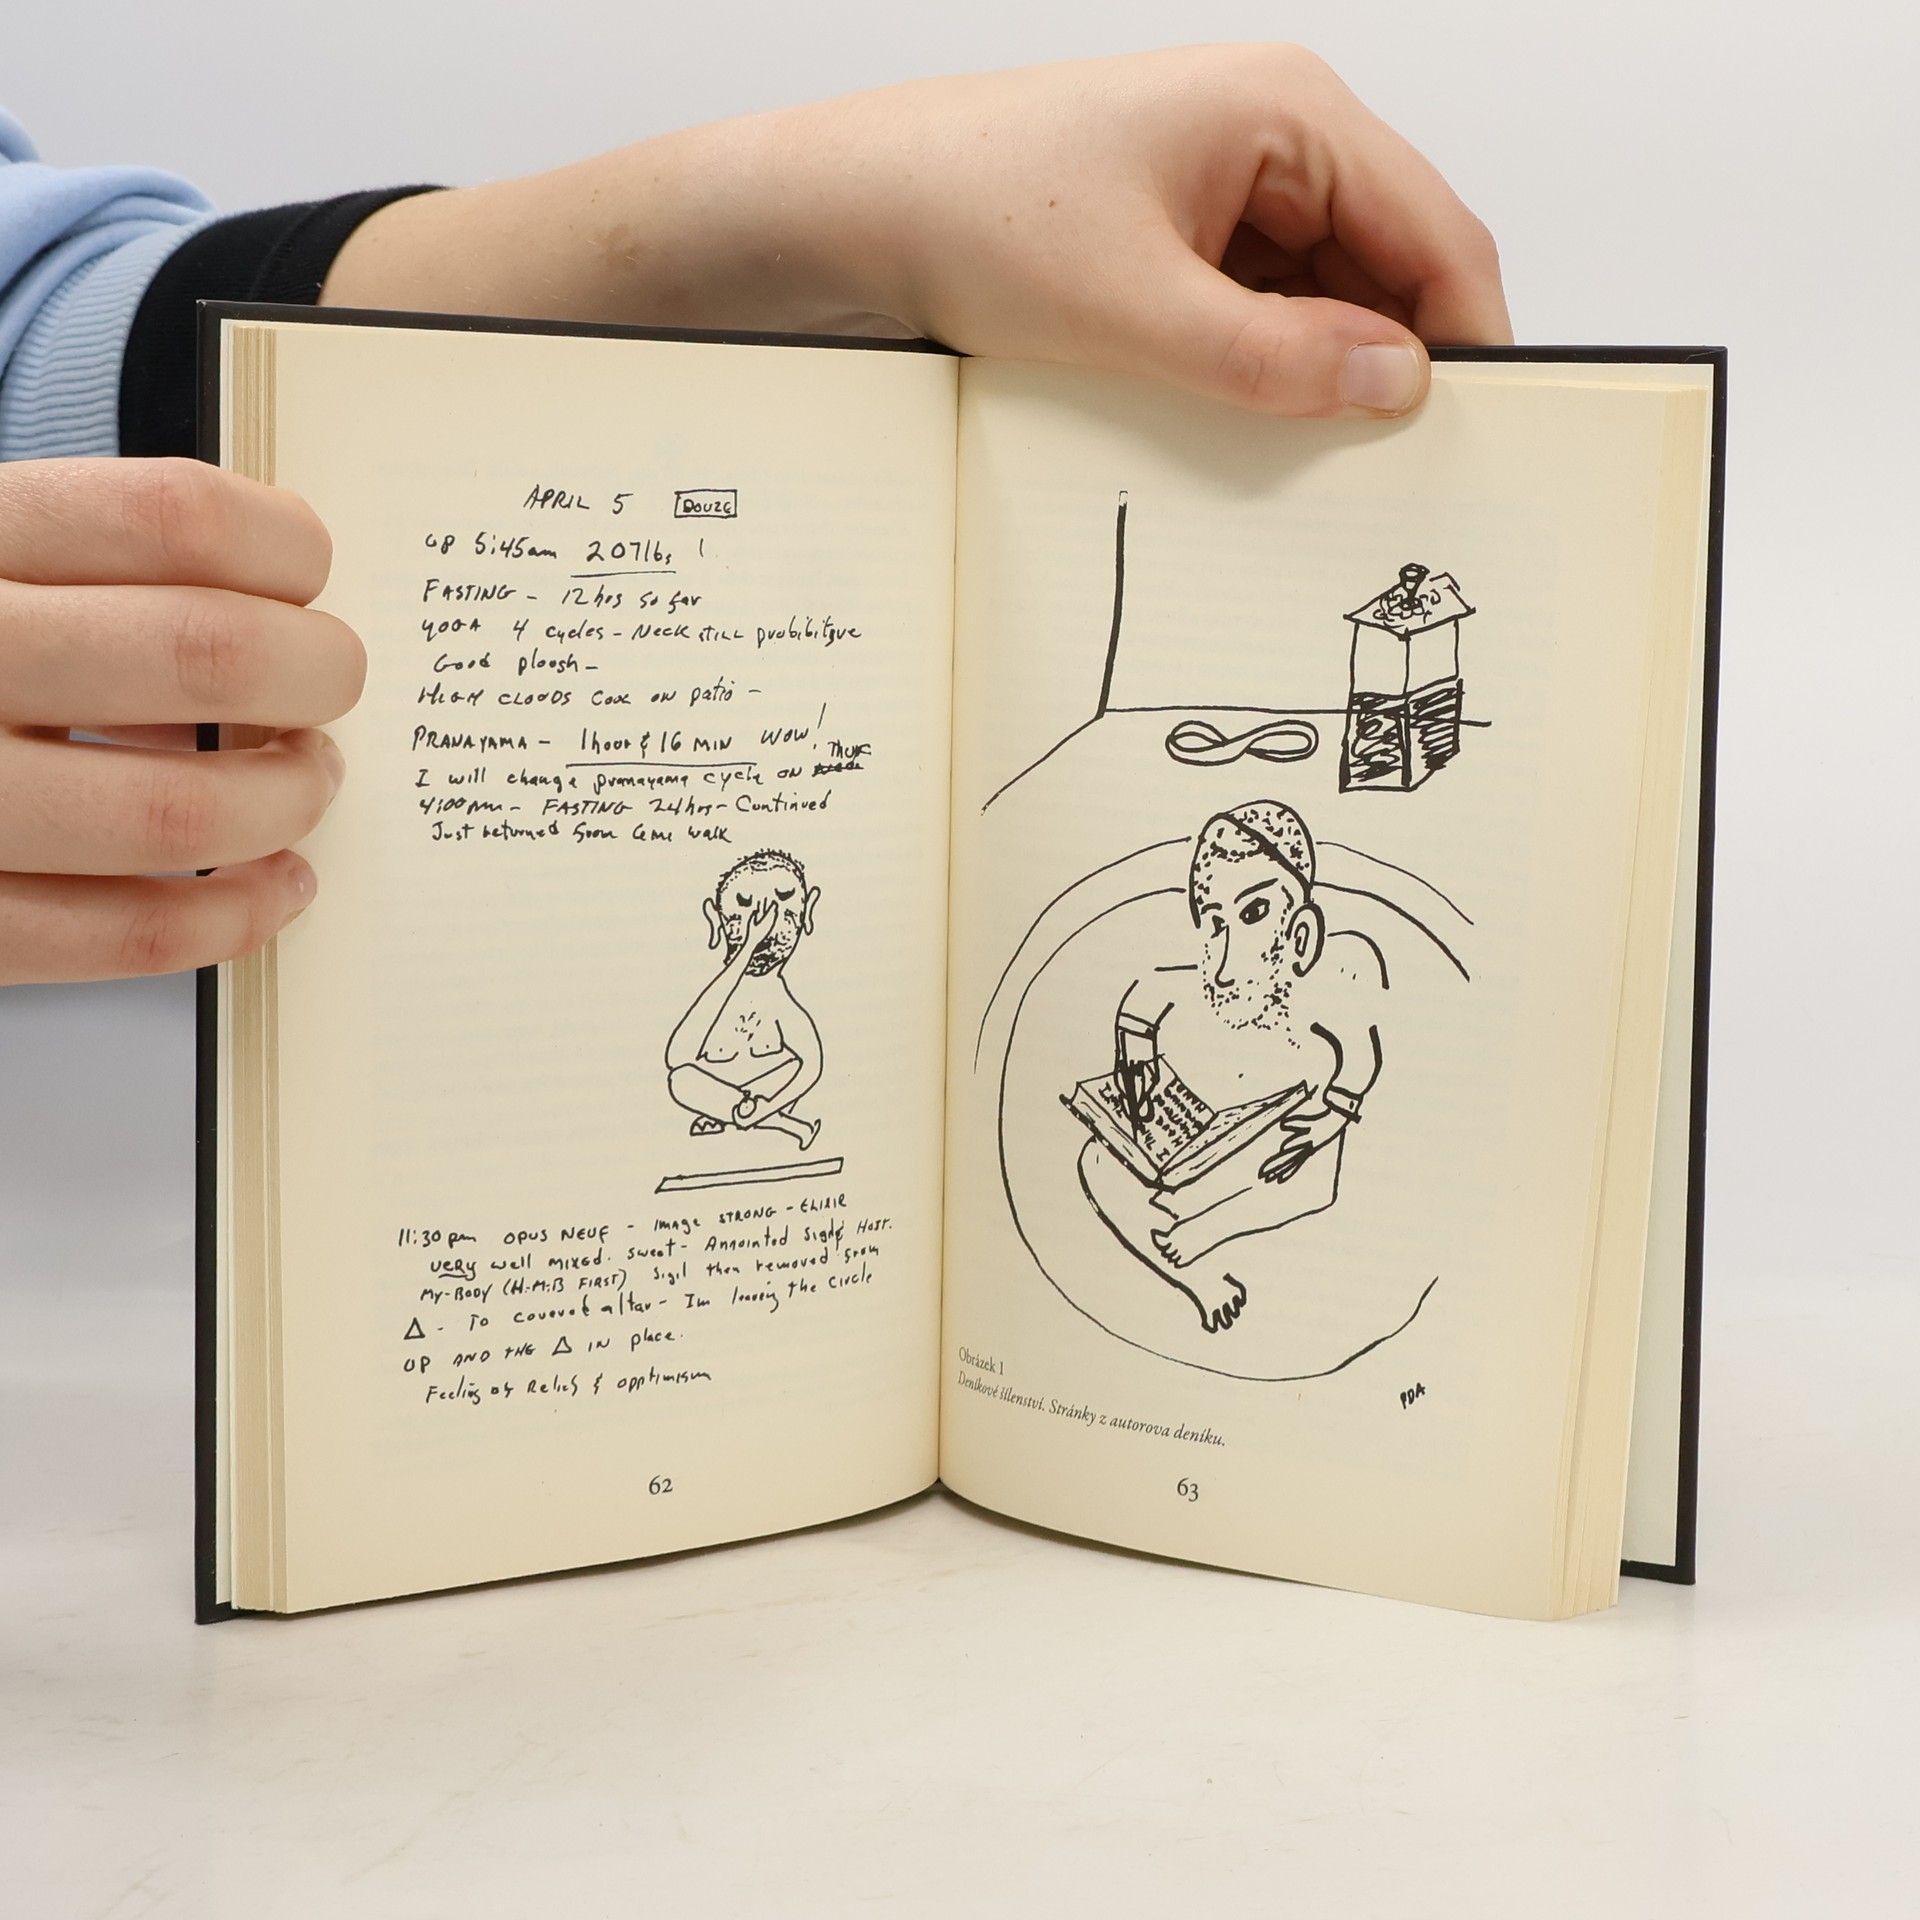 APRIL 5 DOUZE
UP 5:45am 207lbs !
FASTING - 12 hrs so far
YOGA 4 cycles - Neck still prohibitive
Good ploogh -
HIGH CLOUDS COOL ON patio -
PRANAYAMA - 1 hour & 16 MIN WOW!
I will change pranayama cycle ON THUR
4:00pm - FASTING 24 hrs - Continued
Just returned from walk
11:30 pm OPUS NEUF - Image STRONG - ELIXIR
VERY well MIXED. sweet - Annointed Sigil & Host.
My-BODY (H.M.B FIRST) Sigil then removed from
Δ - To covered altar - Im leaving the Circle
UP AND THE Δ IN place.
Feeling of Relief & opptimism
62
PDA
Obrázek 1
Deníkové šílenství. Stránky z autorova deníku.
63